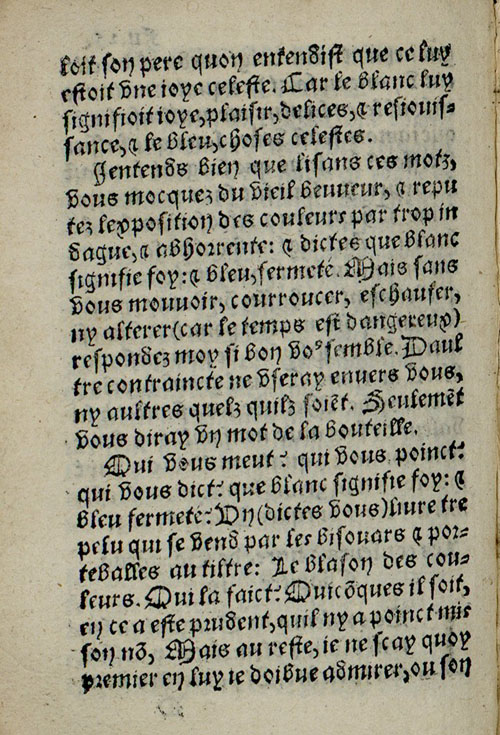 loit son pere quon entendist que ce luy
estoit vne ioye celeste. Car le blanc luy
signifioit ioye, plaisir, delices, ⁊ resiouis-
sance, ⁊ le bleu, choses celestes.
Jentends bien que lisans ces motz,
vous mocquez du vieil beuueur, ⁊ repu
tez lexposition des couleurs par trop in
dague, ⁊ abhorrente: ⁊ dictes que blanc
signifie foy: ⁊ bleu, fermeté. Mais sans
vous mouuoir, courroucer, eschaufer,
ny alterer (car le temps est dangereux)
respondez moy si bon voꝰ semble. Daul
tre contraincte ne vseray enuers vous,
ny aultres quelz quilz soiẽt. Seulemẽt
vous diray vn mot de la bouteille.
Qui vous meut? qui vous poinct?
qui vous dict? que blanc signifie foy: ⁊
bleu fermeté? Vn (dictes vous) liure tre
pelu qui se vend par les bisouars ⁊ por-
teballes au tiltre: Le blason des cou-
leurs. Qui la faict? Quicõques il soit,
en ce a este prudent, quil ny a poinct mis
son nõ, Mais au reste, ie ne scay quoy
premier en luy ie doibue admirer, ou son